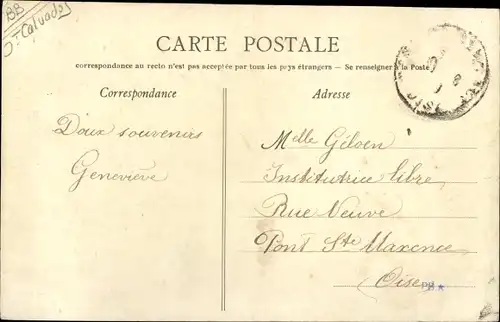 BB
Calvados
CARTE POSTALE
correspondance au recto n'est pas acceptée par tous les pays étrangers — Se renseigner à la Poste
Correspondance
Adresse
Doux souvenirs
Geneviève
Melle
Institutrice libre
Rue Neuve
Pont Ste Maxence
Oise